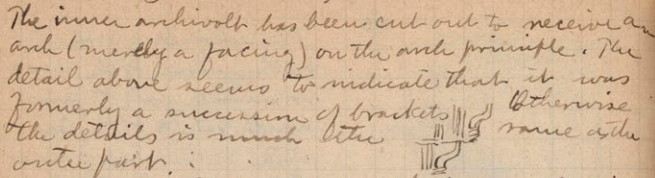 The inner archivolt has been cut out to receive an
arch (merely a facing) on the arch principle. The
detail above seems to indicate that it was
formerly a succession of brackets Otherwise
the details is much the same as the
outer part.